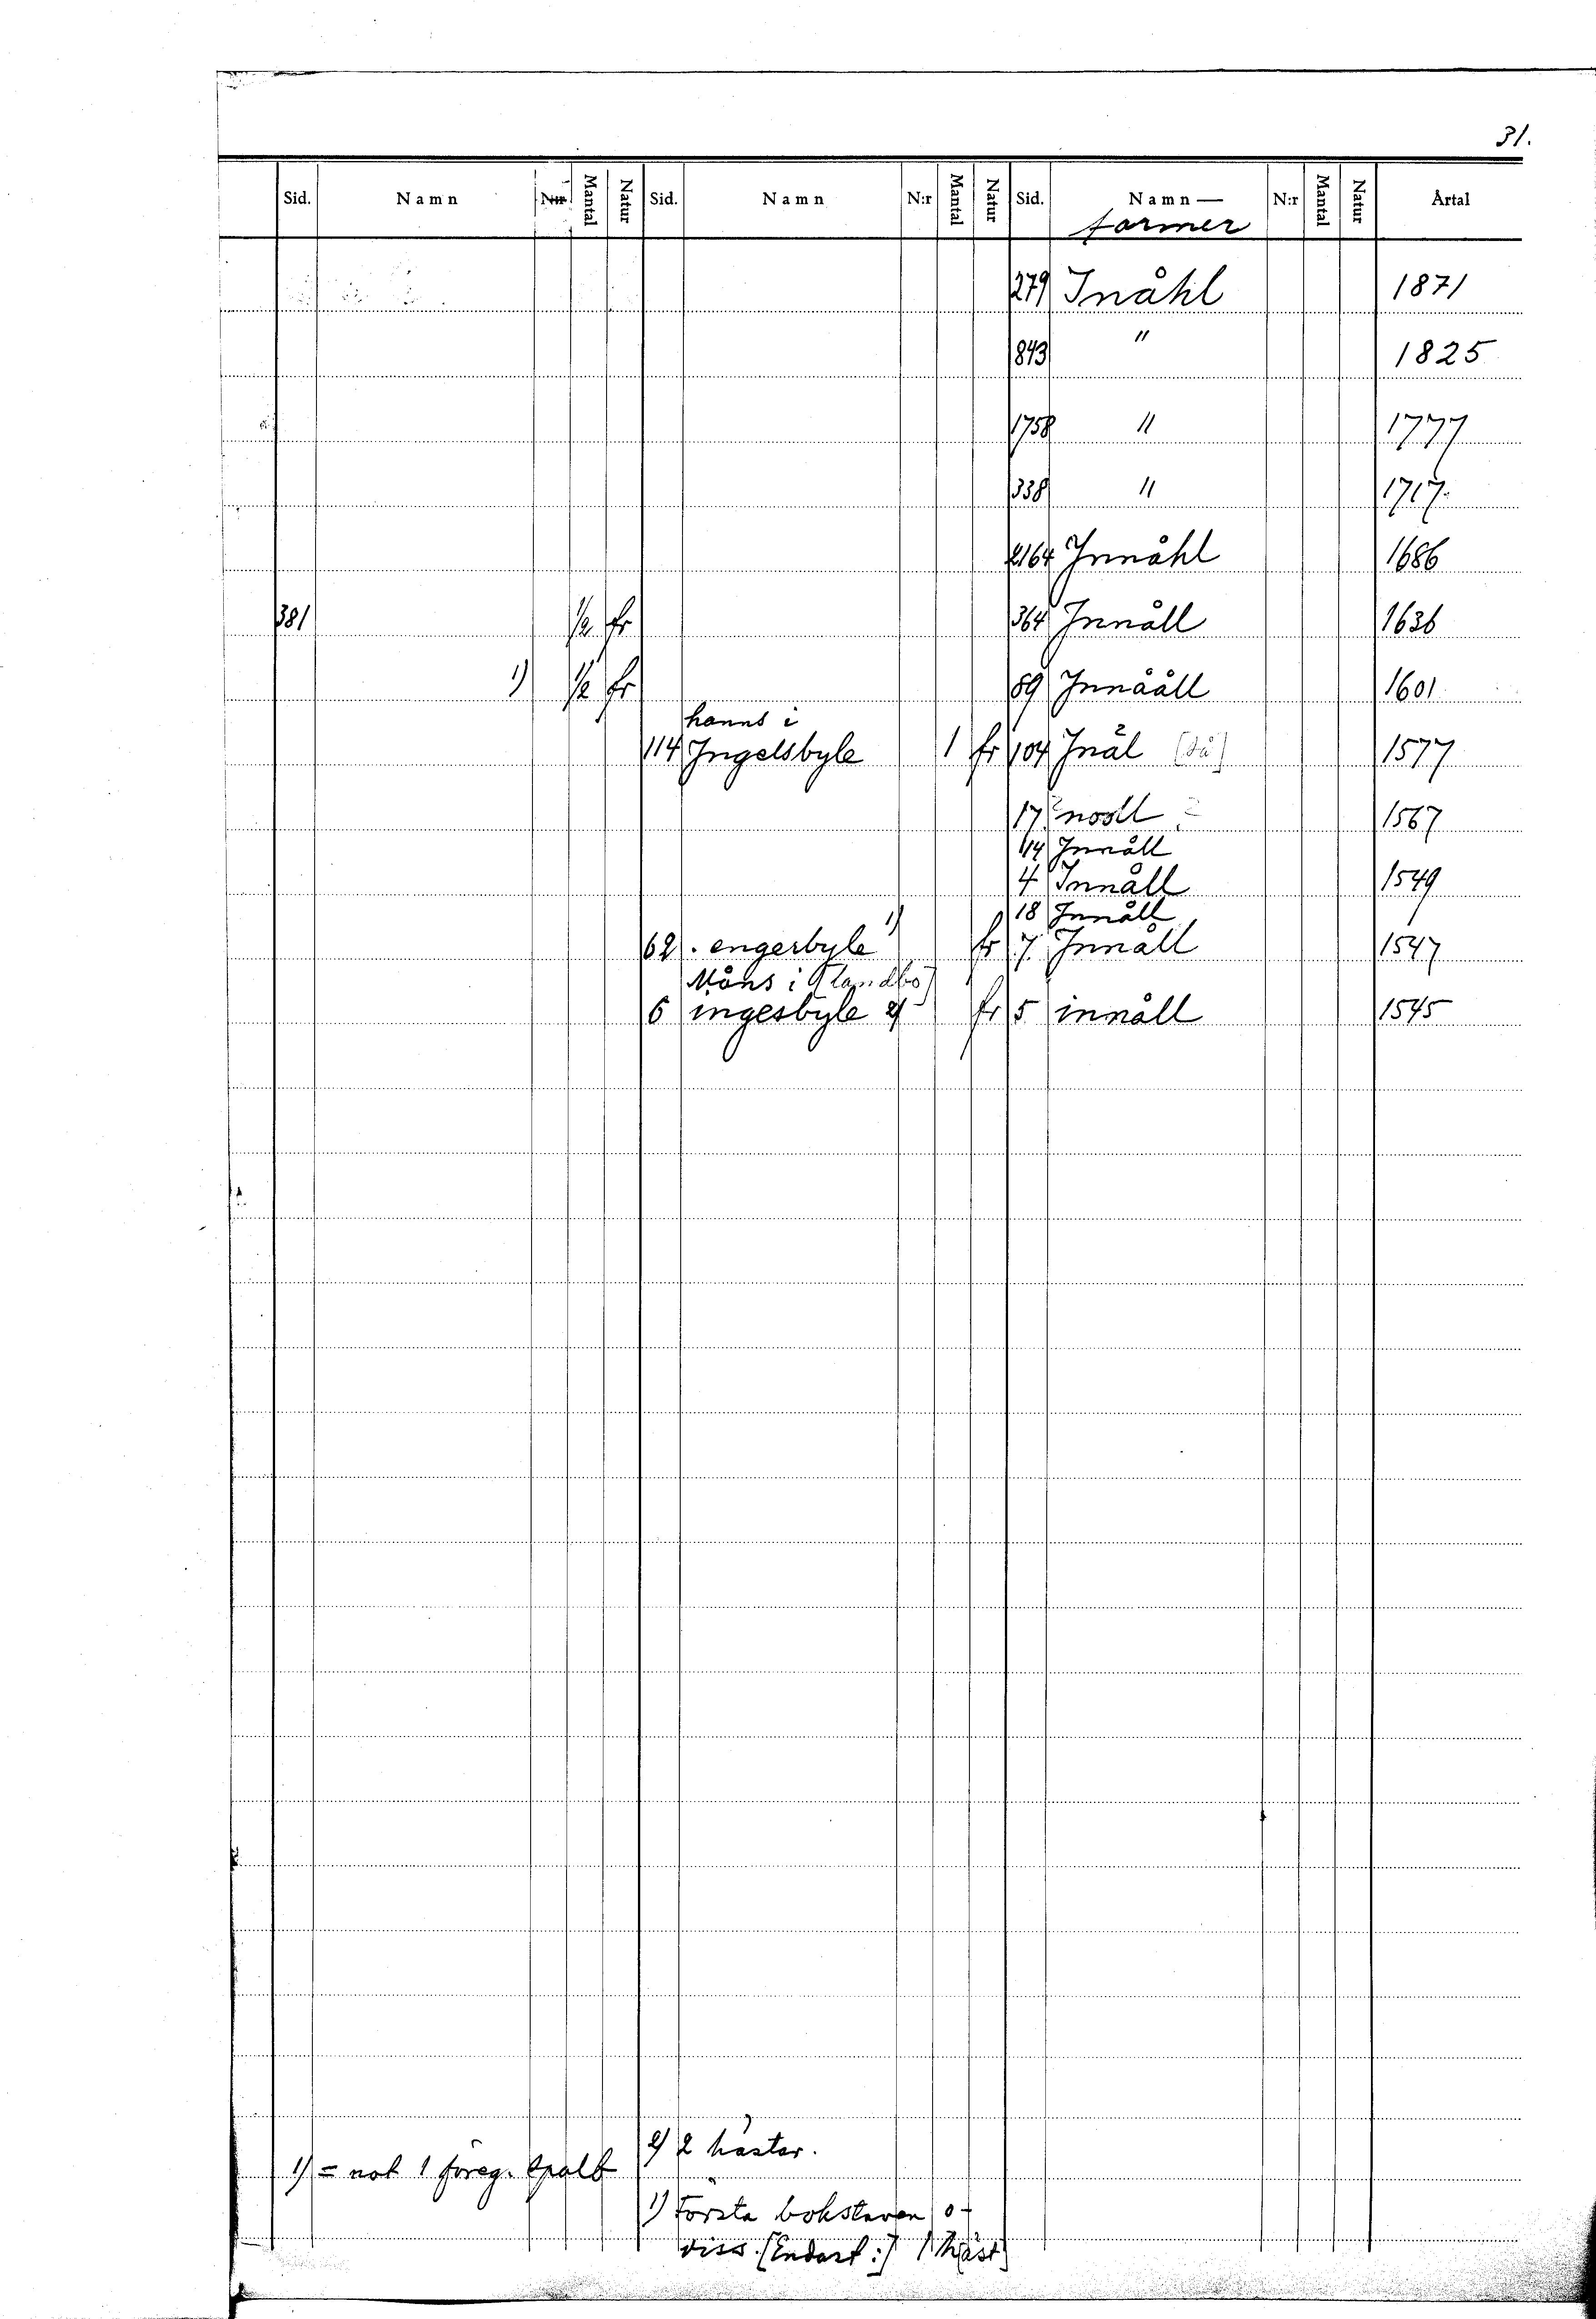 31.
Sid. Namn N:r Mantal Natur Sid. Namn N:r Mantal Natur Sid. Namn — N:r Mantal Natur Årtal
former
279 Inåhl 1871
843 " 1825
1758 " 1777
338 " 1717.
2164 Innåhl 1686
381 1/2 fr 364 Innåll 1636
1) 1/2 fr 89 Innååll 1601
hanns i
114 Ingelsbyle 1 fr 104 Inål [så] 1577
17 nooll 1567
114 Innåll
4 Innåll 1549
18 Innåll
62 . engerbyle 1) fr 7. Innåll 1547
Måns i [landbo]
6 ingesbyle 2) fr 5 innåll 1545
2) 2 hästar.
1) = not 1 föreg. spalt
1) Första bokstaven o-
viss. [Endast:] 1 häst